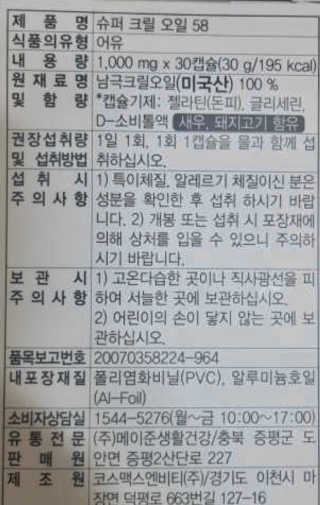 제 품 명 슈퍼 크릴 오일 58
식품의유형 어유
내 용 량 1,000 mg x 30캡슐(30 g/195 kcal)
원 재 료 명 남극크릴오일(미국산) 100 %
및 함 량 *캡슐기제: 젤라틴(돈피), 글리세린,
D-소비톨액 새우, 돼지고기 함유
권장섭취량 1일 1회, 1회 1캡슐을 물과 함께 섭
및 섭취방법 취하십시오.
섭 취 시 1) 특이체질, 알레르기 체질이신 분은
주 의 사 항 성분을 확인한 후 섭취 하시기 바랍
니다. 2) 개봉 또는 섭취 시 포장재에
의해 상처를 입을 수 있으니 주의하
시기 바랍니다.
보 관 시 1) 고온다습한 곳이나 직사광선을 피
주 의 사 항 하여 서늘한 곳에 보관하십시오.
2) 어린이의 손이 닿지 않는 곳에 보
관하십시오.
품목보고번호 20070358224-964
내포장재질 폴리염화비닐(PVC), 알루미늄호일
(Al-Foil)
소비자상담실 1544-5276(월~금 10:00~17:00)
유 통 전 문 (주)메이준생활건강/충북 증평군 도
판 매 원 안면 증평2산단로 227
제 조 원 코스맥스엔비티(주)/경기도 이천시 마
장면 덕평로 663번길 127-16